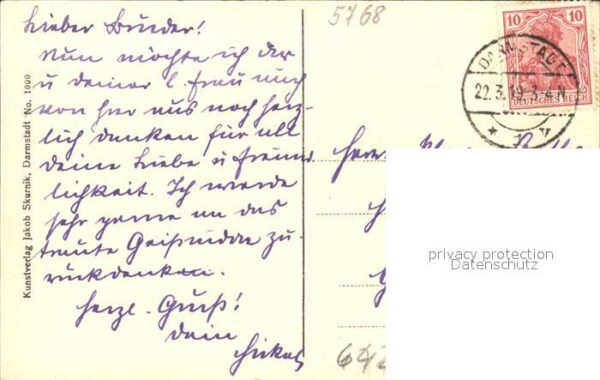 5768
Lieber Bruder!
Nun möchte ich dir
u deiner l. Frau auch
von hier aus noch herz-
lich danken für all
deine Liebe u Freund
lichkeit. Ich werde
sehr gerne an das
traute zu-
rückdenken.
Herzl. Gruß!
Dein
Kunstverlag Jakob Skurnik, Darmstadt No. 1000
10 10
DEUTSCHES REICH
DARMSTADT
22.3.19.3-4.N.
Herrn
privacy protection
Datenschutz